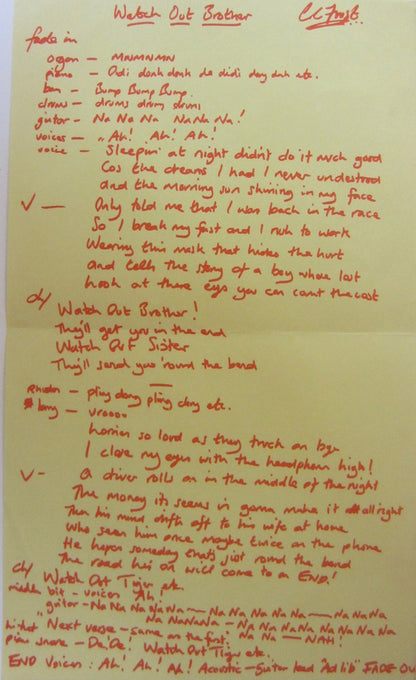 Watch Out Brother CC Frost
fade in
organ — MNMNMNMN
piano — Didi donk donk de didi dong duh etc.
bass — Bump Bump Bump.
drums — drums drum drums
guitar — Na Na Na Na Na Na!
voices — "Ah! Ah! Ah!
voice — Sleepin' at night didn't do it much good
Cos the dreams I had I never understood
and the morning sun shining in my face
V — Only told me that I was back in the race
So I break my fast and I rush to work
Wearing this mask that hides the hurt
and tells the story of a boy whose lost
Look at these eyes you can count the cost
ch/ Watch Out Brother!
They'll get you in the end
Watch Out Sister
They'll send you 'round the bend
Rhodes — pling dong pling dong etc.
— vroooo
lorries so loud as they truck on by
I close my eyes with the headphones high!
V — A driver rolls on in the middle of the night
The money it seems is gonna make it all right
Then his mind drifts off to his wife at home
Who seen him once maybe twice on the phone
He hopes someday that's just round the bend
The road his on will come to a END!
ch/ Watch Out Tiger etc.
middle bit — voices Ah!
" guitar — Na Na Na Na Na — Na Na Na Na Na — Na Na Na
Na Na Na Na — Na Na Na Na Na Na Na Na
hi-hat Next verse — same as the first. Na Na — NAH!
piano snare — De. De! Watch Out Tiger etc.
END Voices: Ah! Ah! Ah! Acoustic — Guitar lead "Ad lib" FADE Ou